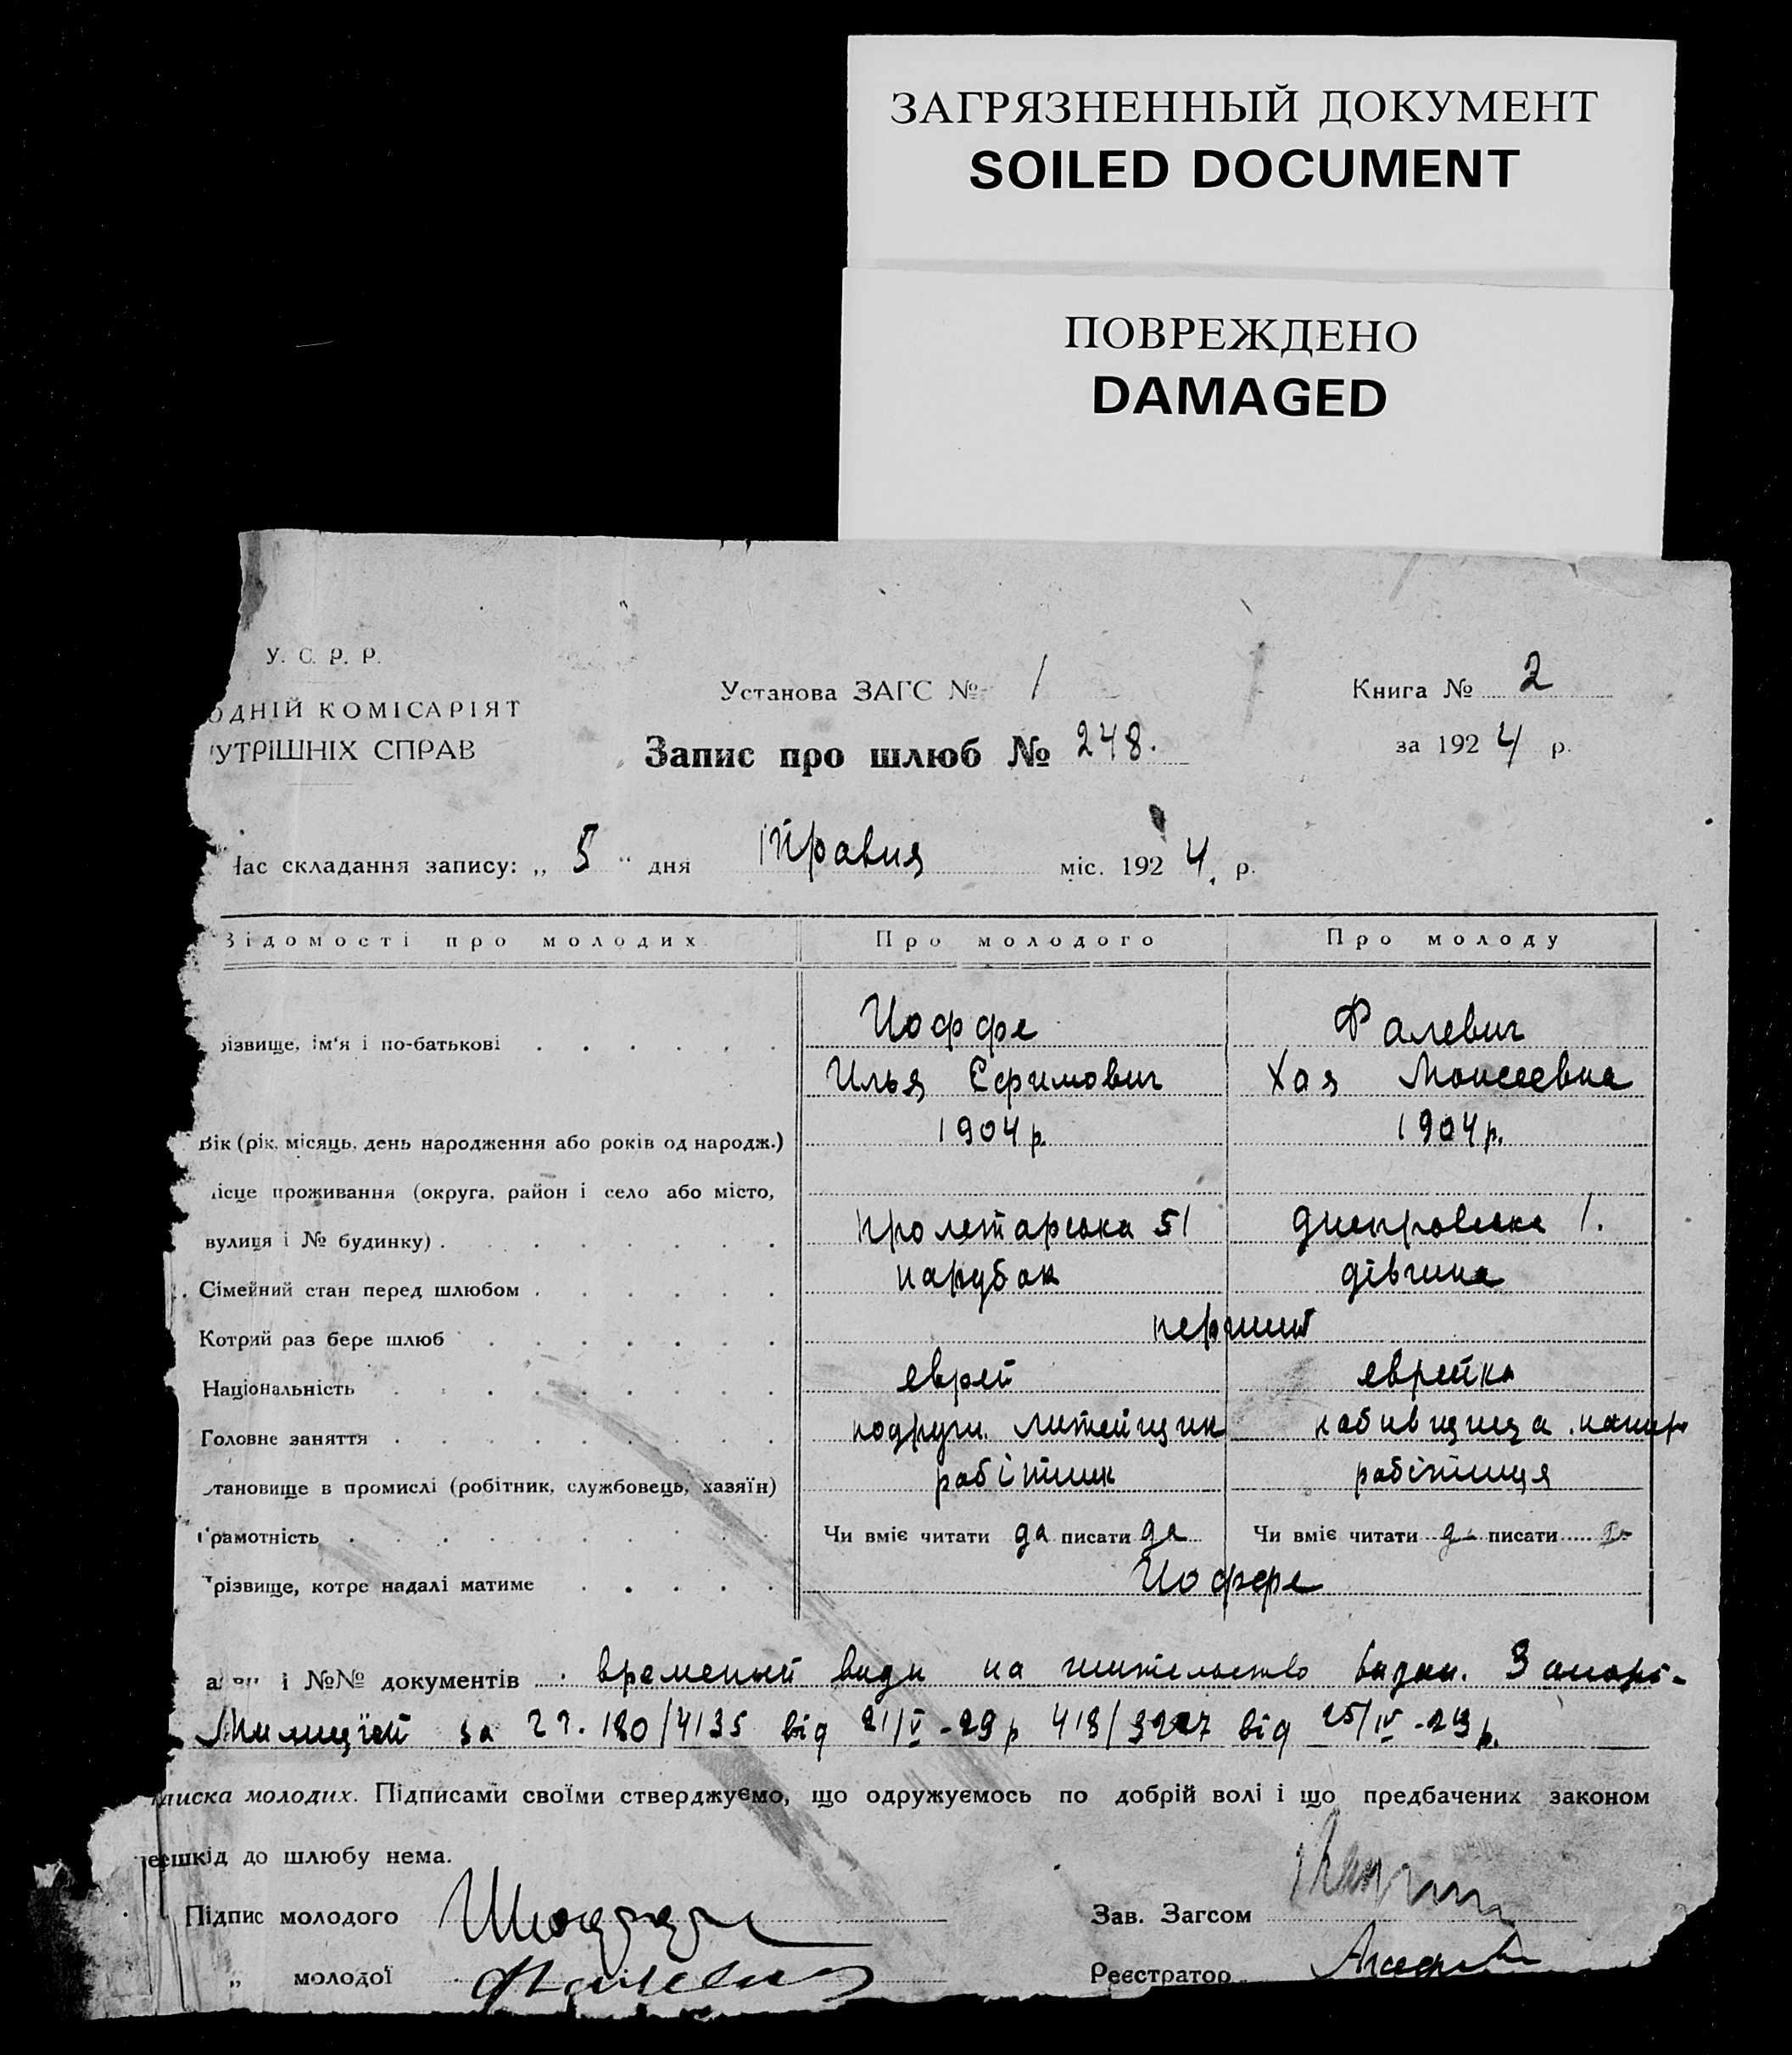 ЗАГРЯЗНЕННЫЙ ДОКУМЕНТ
SOILED DOCUMENT
ПОВРЕЖДЕНО
DAMAGED
У. С. Р. Р.
ОДНІЙ КОМІСАРІЯТ
УТРІШНІХ СПРАВ
Установа ЗАГС № 1
Книга № 2
Запис про шлюб № 248.
за 1924 р.
Час складання запису: „ 5 " дня Травня міс. 1924 р.
Відомості про молодих Про молодого Про молоду
різвище, ім'я і по-батькові
Иоффе Фалевич
Илья Ефимович Хая Моисеевна
Вік (рік, місяць, день народження або років од народж.) 1904 р. 1904 р.
ісце проживання (округа, район і село або місто,
вулиця і № будинку) Пролетарська 51 Днепровська 1.
Сімейний стан перед шлюбом парубок дівчина
Котрий раз бере шлюб перший
Національність еврей еврейка
Головне заняття подруч. литейщик набивщица
тановище в промислі (робітник, службовець, хазяїн) робітник робітниця
Грамотність Чи вміє читати да писати да Чи вміє читати да писати
різвище, котре надалі матиме Иоффе
і №№ документів временый види на жительство видан. Запорі-
Милицїей за 180/4135 від 21/V-29 р 418/3227 від 25/IV-29 р.
писка молодих. Підписами своїми стверджуємо, що одружуємось по добрій волі і що предбачених законом
ешкід до шлюбу нема.
Підпис молодого Иоффе
Зав. Загсом
„ молодої Фалевич
Реєстратор